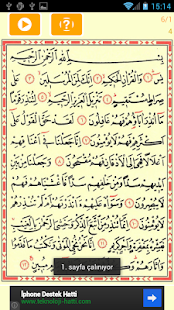 15:14
6/1
4
بِسْمِ اللهِ الرَّحْمٰنِ الرَّحِيمِ
يسٓ وَالْقُرْاٰنِ الْحَكِيمِ اِنَّكَ لَمِنَ الْمُرْسَلِينَ عَلٰى
صِرَاطٍ مُسْتَقِيمٍ تَنْزِيلَ الْعَزِيزِ الرَّحِيمِ لِتُنْذِرَ قَوْمًا
مَا اُنْذِرَ اٰبَاؤُهُمْ فَهُمْ غَافِلُونَ لَقَدْ حَقَّ الْقَوْلُ عَلٰى
اَكْثَرِهِمْ فَهُمْ لَا يُؤْمِنُونَ اِنَّا جَعَلْنَا فِى اَعْنَاقِهِمْ
اَغْلَالًا فَهِىَ اِلَى الْاَذْقَانِ فَهُمْ مُقْمَحُونَ وَجَعَلْنَا مِنْ بَيْنِ
اَيْدِيهِمْ سَدًّا وَمِنْ خَلْفِهِمْ سَدًّا فَاَغْشَيْنَاهُمْ فَهُمْ
لَا يُبْصِرُونَ وَسَوَاءٌ عَلَيْهِمْ ءَاَنْذَرْتَهُمْ اَمْ لَمْ تُنْذِرْهُمْ
لَا يُؤْمِنُونَ اِنَّمَا تُنْذِرُ مَنِ اتَّبَعَ الذِّكْرَ وَخَشِىَ الرَّحْمٰنَ
بِالْغَيْبِ فَبَشِّرْهُ بِمَغْفِرَةٍ وَاَجْرٍ كَرِيمٍ
اِنَّا نَحْنُ نُحْيِ الْمَوْتٰى وَنَكْتُبُ مَا قَدَّمُوا
وَاٰثَارَهُمْ مُبِينٍ
1. sayfa çalınıyor
İphone Destek Hatti
www.teknoloji-hatti.com